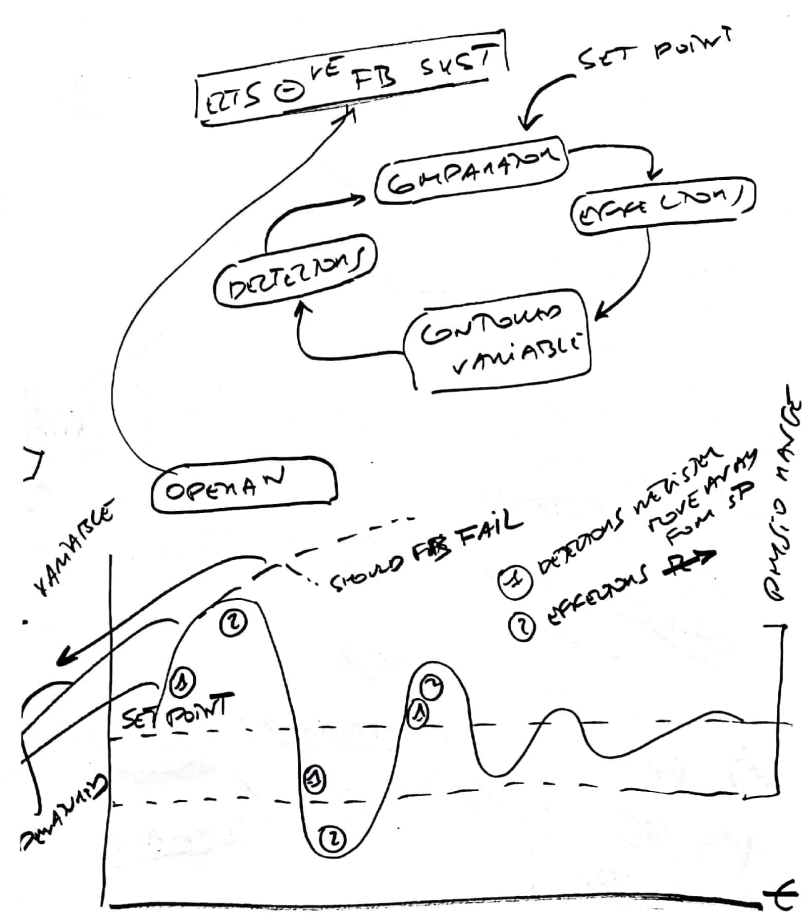 ⊖VE FB SYST
SET POINT
COMPARATOR
EFFECTORS
DETECTORS
CONTROLLED
VARIABLE
OPERAN
VARIABLE
SHOULD FB FAIL
① DETECTORS REGISTER
MOVE AWAY
FROM SP
② EFFECTORS
PHYSIO RANGE
②
①
SET POINT
②
①
①
②
t